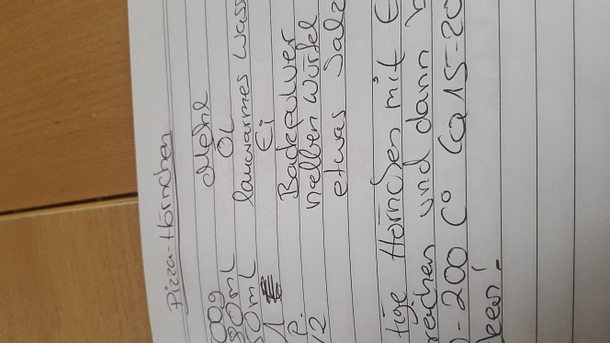 Pizza-Hörnchen
00g Mehl
80ml Öl
50ml lauwarmes Wass
1 Ei
P. Backpulver
1/2 halben Würfel
etwas Salz
tige Hörnchen mit E
und dann
-200 C° Ca 15-20